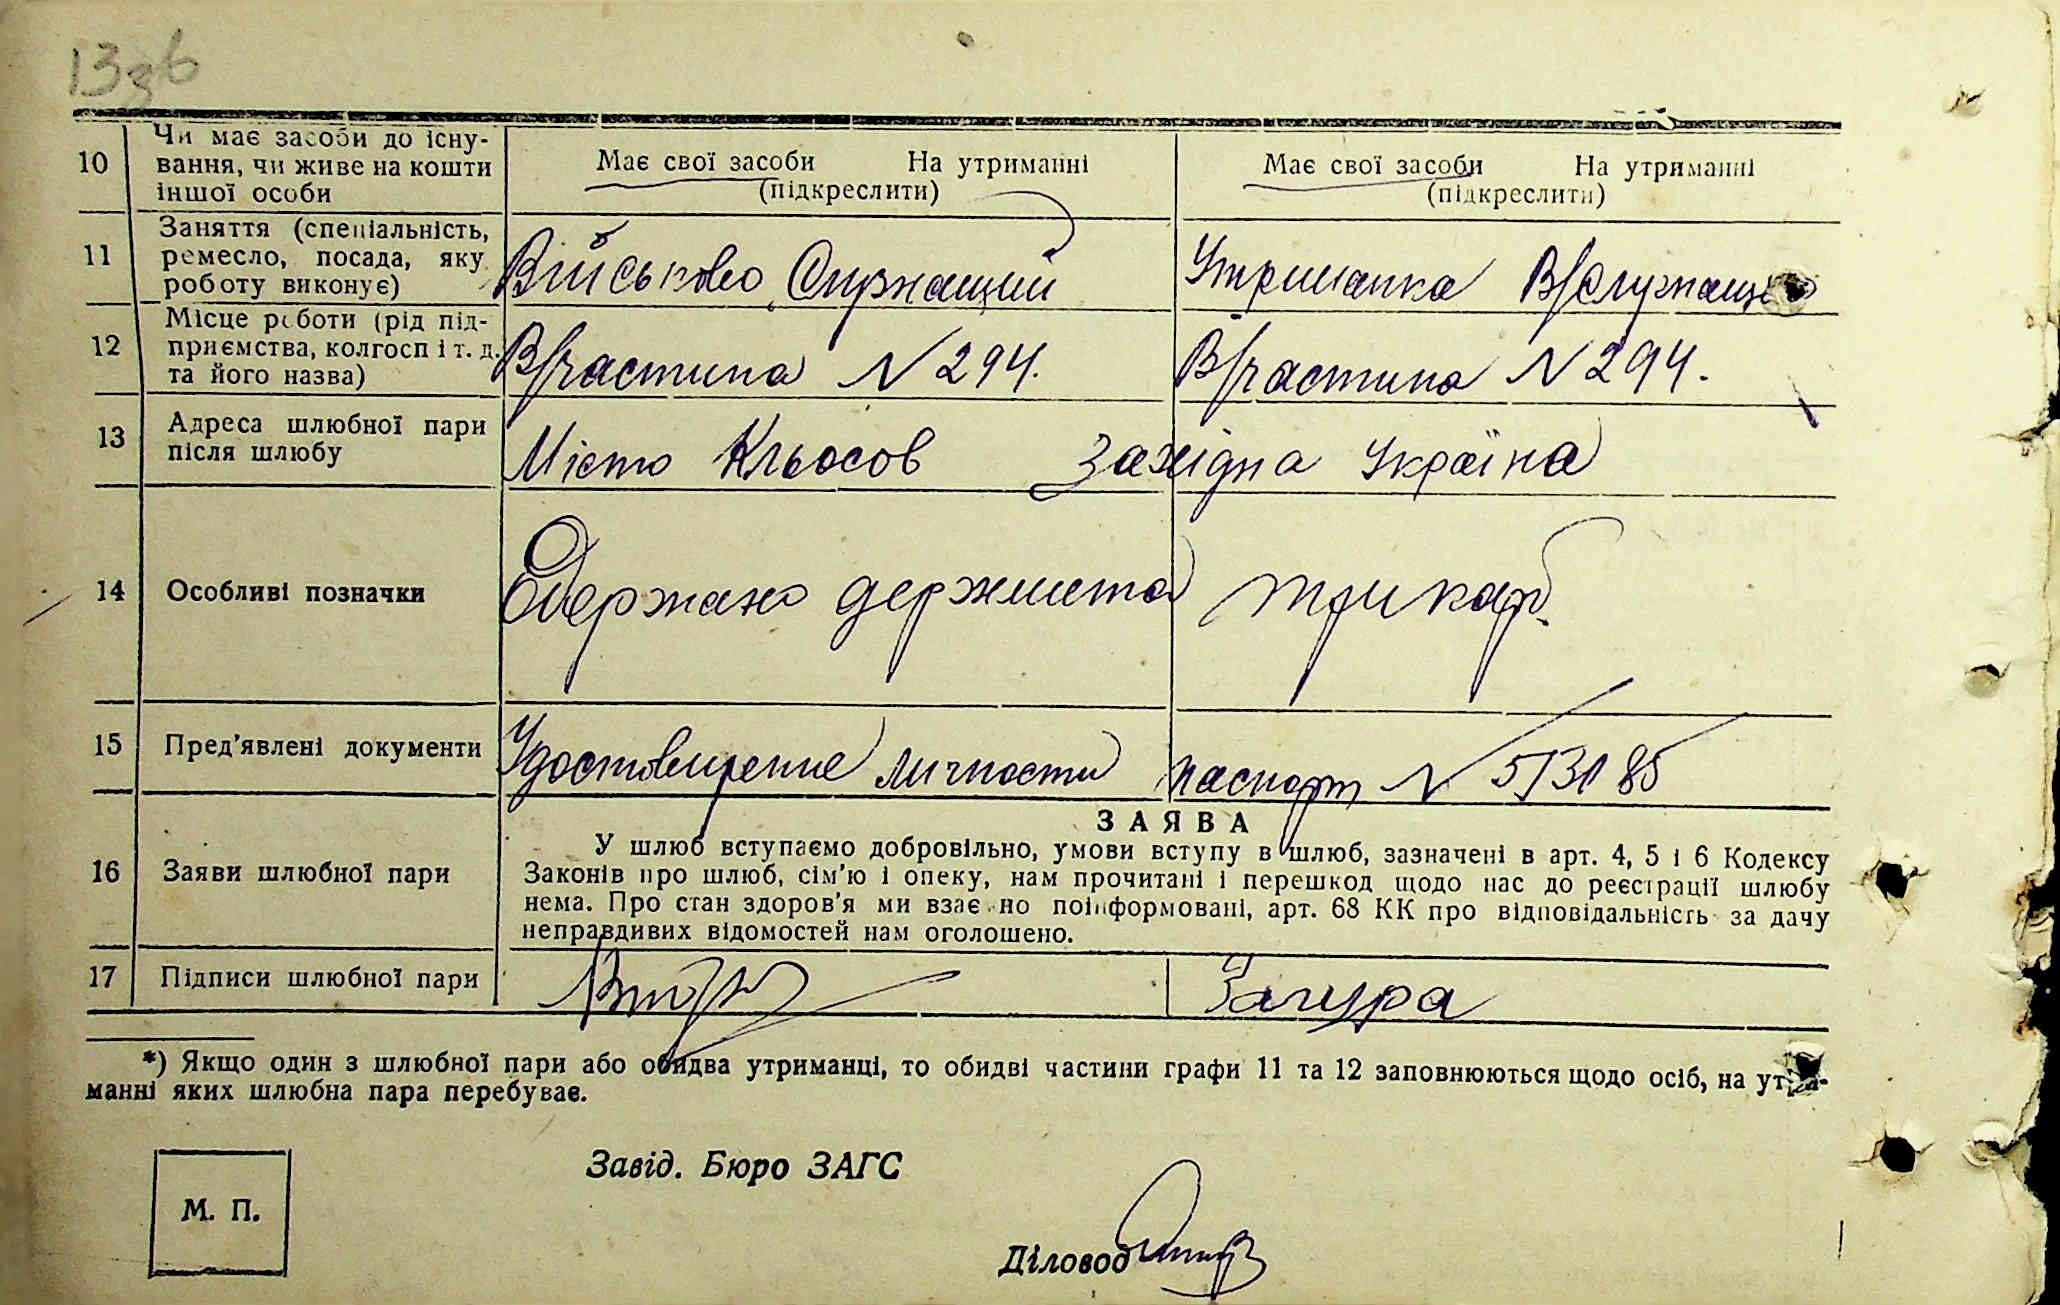 13зв
10 Чи має засоби до існу-
вання, чи живе на кошти
іншої особи
Має свої засоби На утриманні
(підкреслити)
Має свої засоби На утриманні
(підкреслити)
11 Заняття (спеціальність,
ремесло, посада, яку
роботу виконує)
Військово Служащий
Утриманка В/служаще
12 Місце роботи (рід під-
приємства, колгосп і т. д.
та його назва)
В/частина N 294.
В/частина N 294.
13 Адреса шлюбної пари
після шлюбу
Місто Кльосов Західна Україна
14 Особливі позначки
Одержано держмета три карб.
15 Пред'явлені документи
Удостовирение личности
паспорт N 513185
ЗАЯВА
16 Заяви шлюбної пари
У шлюб вступаємо добровільно, умови вступу в шлюб, зазначені в арт. 4, 5 і 6 Кодексу
Законів про шлюб, сім'ю і опеку, нам прочитані і перешкод щодо нас до реєстрації шлюбу
нема. Про стан здоров'я ми взаємно поінформовані, арт. 68 КК про відповідальність за дачу
неправдивих відомостей нам оголошено.
17 Підписи шлюбної пари
Загура
*) Якщо один з шлюбної пари або обидва утриманці, то обидві частини графи 11 та 12 заповнюються щодо осіб, на утри-
манні яких шлюбна пара перебуває.
Завід. Бюро ЗАГС
М. П.
Діловод